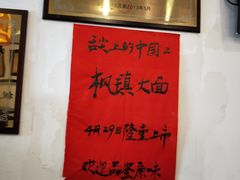 舌尖上的中国2
枫镇大面
4月29日隆重上市
欢迎品鉴原味